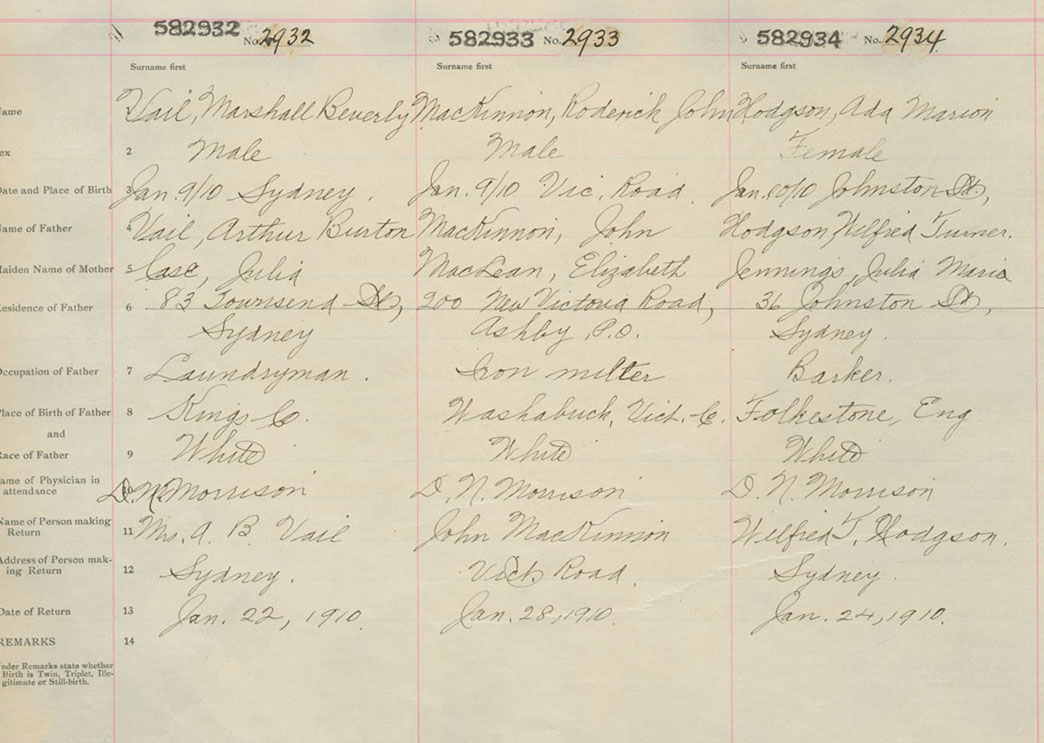 582932 No. 2932 582933 No. 2933 582934 No. 2934
Surname first Surname first Surname first
ame Vail, Marshall Beverly MacKinnon, Roderick John Hodgson, Ada Marion
ex 2 Male Male Female
Date and Place of Birth 3 Jan. 9/10 Sydney. Jan. 9/10 Vic. Road. Jan. 10/10 Johnston St,
ame of Father 4 Vail, Arthur Burton MacKinnon, John Hodgson, Wilfred Turner.
aiden Name of Mother 5 Case, Julia MacLean, Elizabeth Jennings, Julia Maria
esidence of Father 6 83 Townsend St, 200 New Victoria Road, 36 Johnston St,
Sydney Ashby P.O. Sydney.
Occupation of Father 7 Laundryman. Iron melter Barker.
lace of Birth of Father 8 Kings Co. Washabuck, Vict. Co. Folkestone, Eng
and
Race of Father 9 White White White
ame of Physician in
attendance 10 D. N. Morrison D. N. Morrison D. N. Morrison
Name of Person making
Return 11 Mrs. A. B. Vail John MacKinnon Wilfred T. Hodgson.
Address of Person mak-
ing Return 12 Sydney. Vict. Road. Sydney
Date of Return 13 Jan. 22, 1910. Jan. 28, 1910. Jan. 24, 1910.
REMARKS 14
nder Remarks state whether
Birth is Twin, Triplet, Ille-
gitimate or Still-birth.